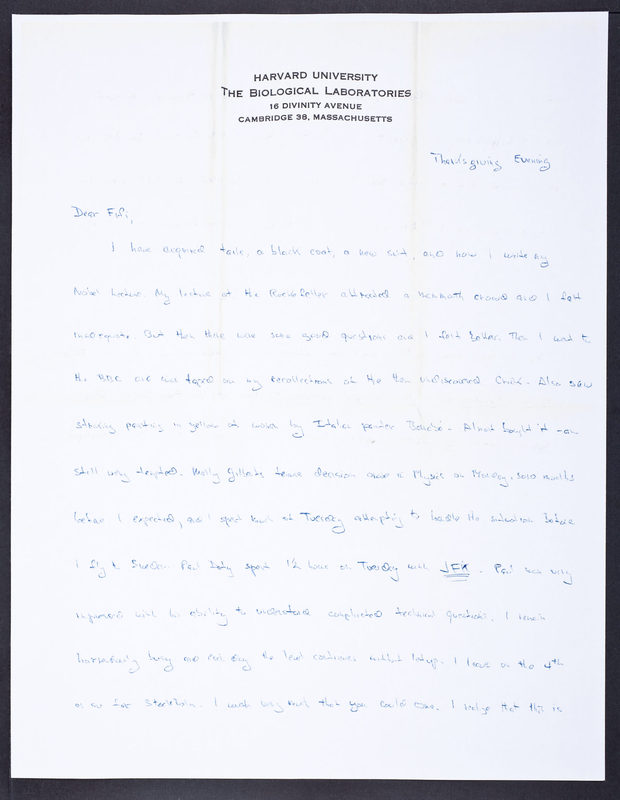 HARVARD UNIVERSITY
THE BIOLOGICAL LABORATORIES
16 DIVINITY AVENUE
CAMBRIDGE 38, MASSACHUSETTS
Thanksgiving Evening
Dear Fifi,
I have acquired tails, a black coat, a new suit, and now I write my
Nobel Lecture. My lecture at the Rockefeller attracted a mammoth crowd and I felt
inadequate. But then there were some good questions and I felt better. Then I went to
the and was taped on my recollections of the Also saw
striking painting in yellow by Italian painter Almost bought it - am
still very tempted. Wally Gilbert's tenure decision in Physics on Monday, some months
before I expected, and I spent much of Tuesday attempting to handle the situation before
I fly to Sweden. Paul Doty spent 1½ hours on Tuesday with JFK. Paul was very
impressed with his ability to understand complicated technical questions. I remain
busy and each day the level continues without letup. I leave on the 4th
or so for Stockholm. I wish very much that you could come. I realize that this is